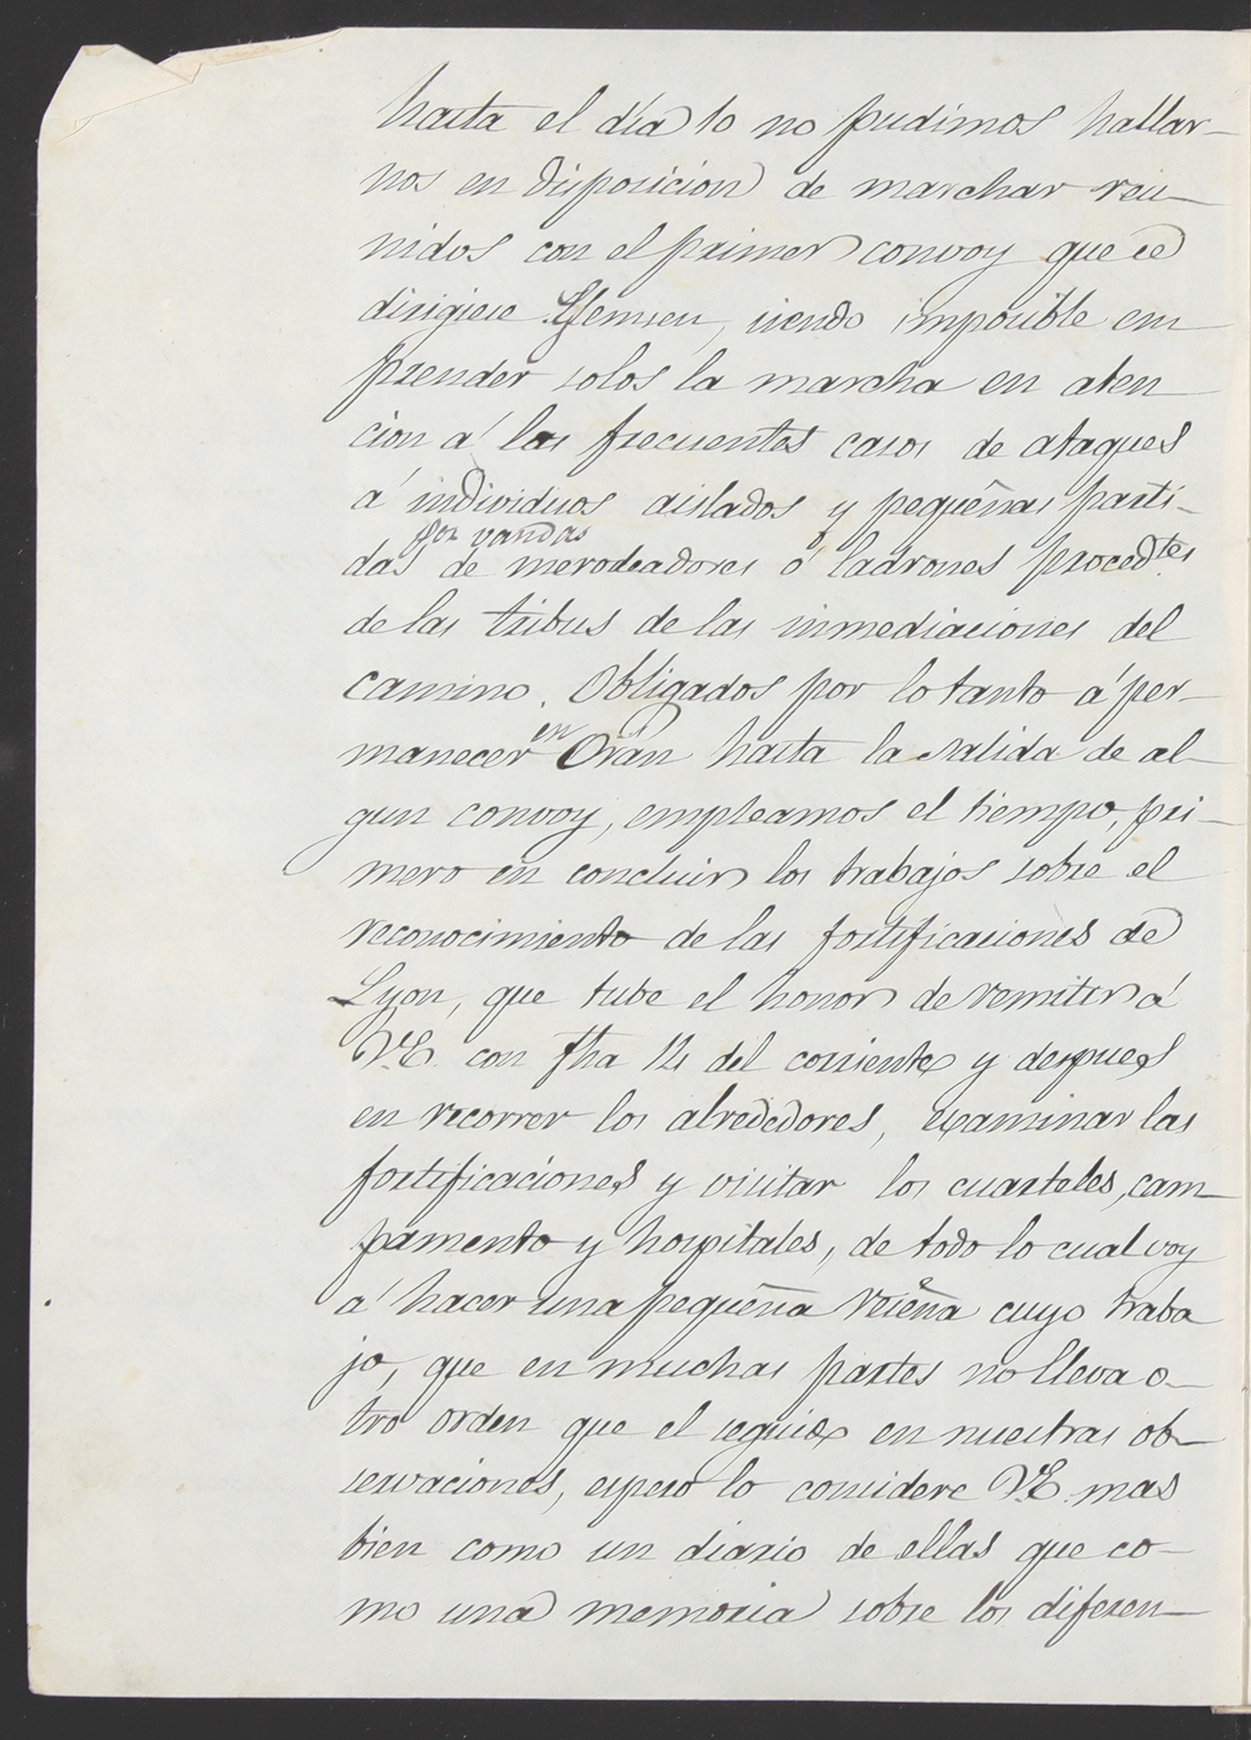 hasta el dia 10 no pudimos hallar-
nos en disposicion de marchar reu-
nidos con el primer convoy que se
dirigiese Tlemsen, siendo imposible em-
prender solos la marcha en aten
cion á los frecuentes casos de ataques
á individuos aislados y pequeñas parti-
por vandas
das de merodeadores ó ladrones proced.tes
de las tribus de las inmediaciones del
camino. Obligados por lo tanto á per-
en
manecer Orán hasta la salida de al-
gun convoy, empleamos el tiempo, pri-
mero en concluir los trabajos sobre el
reconocimiento de las fortificaciones de
Lyon, que tube el honor de remitir á
V.E. con fha 12 del corriente y despues
en recorrer los alrededores, examinar las
fortificaciones y visitar los cuarteles, cam-
pamento y hospitales, de todo lo cual voy
á hacer una pequeña reseña cuyo traba
jo, que en muchas partes no lleva o-
tro orden que el seguido en nuestras ob-
servaciones, espero lo considere V.E. mas
bien como un diario de ellas que co-
mo una memoria sobre los diferen-